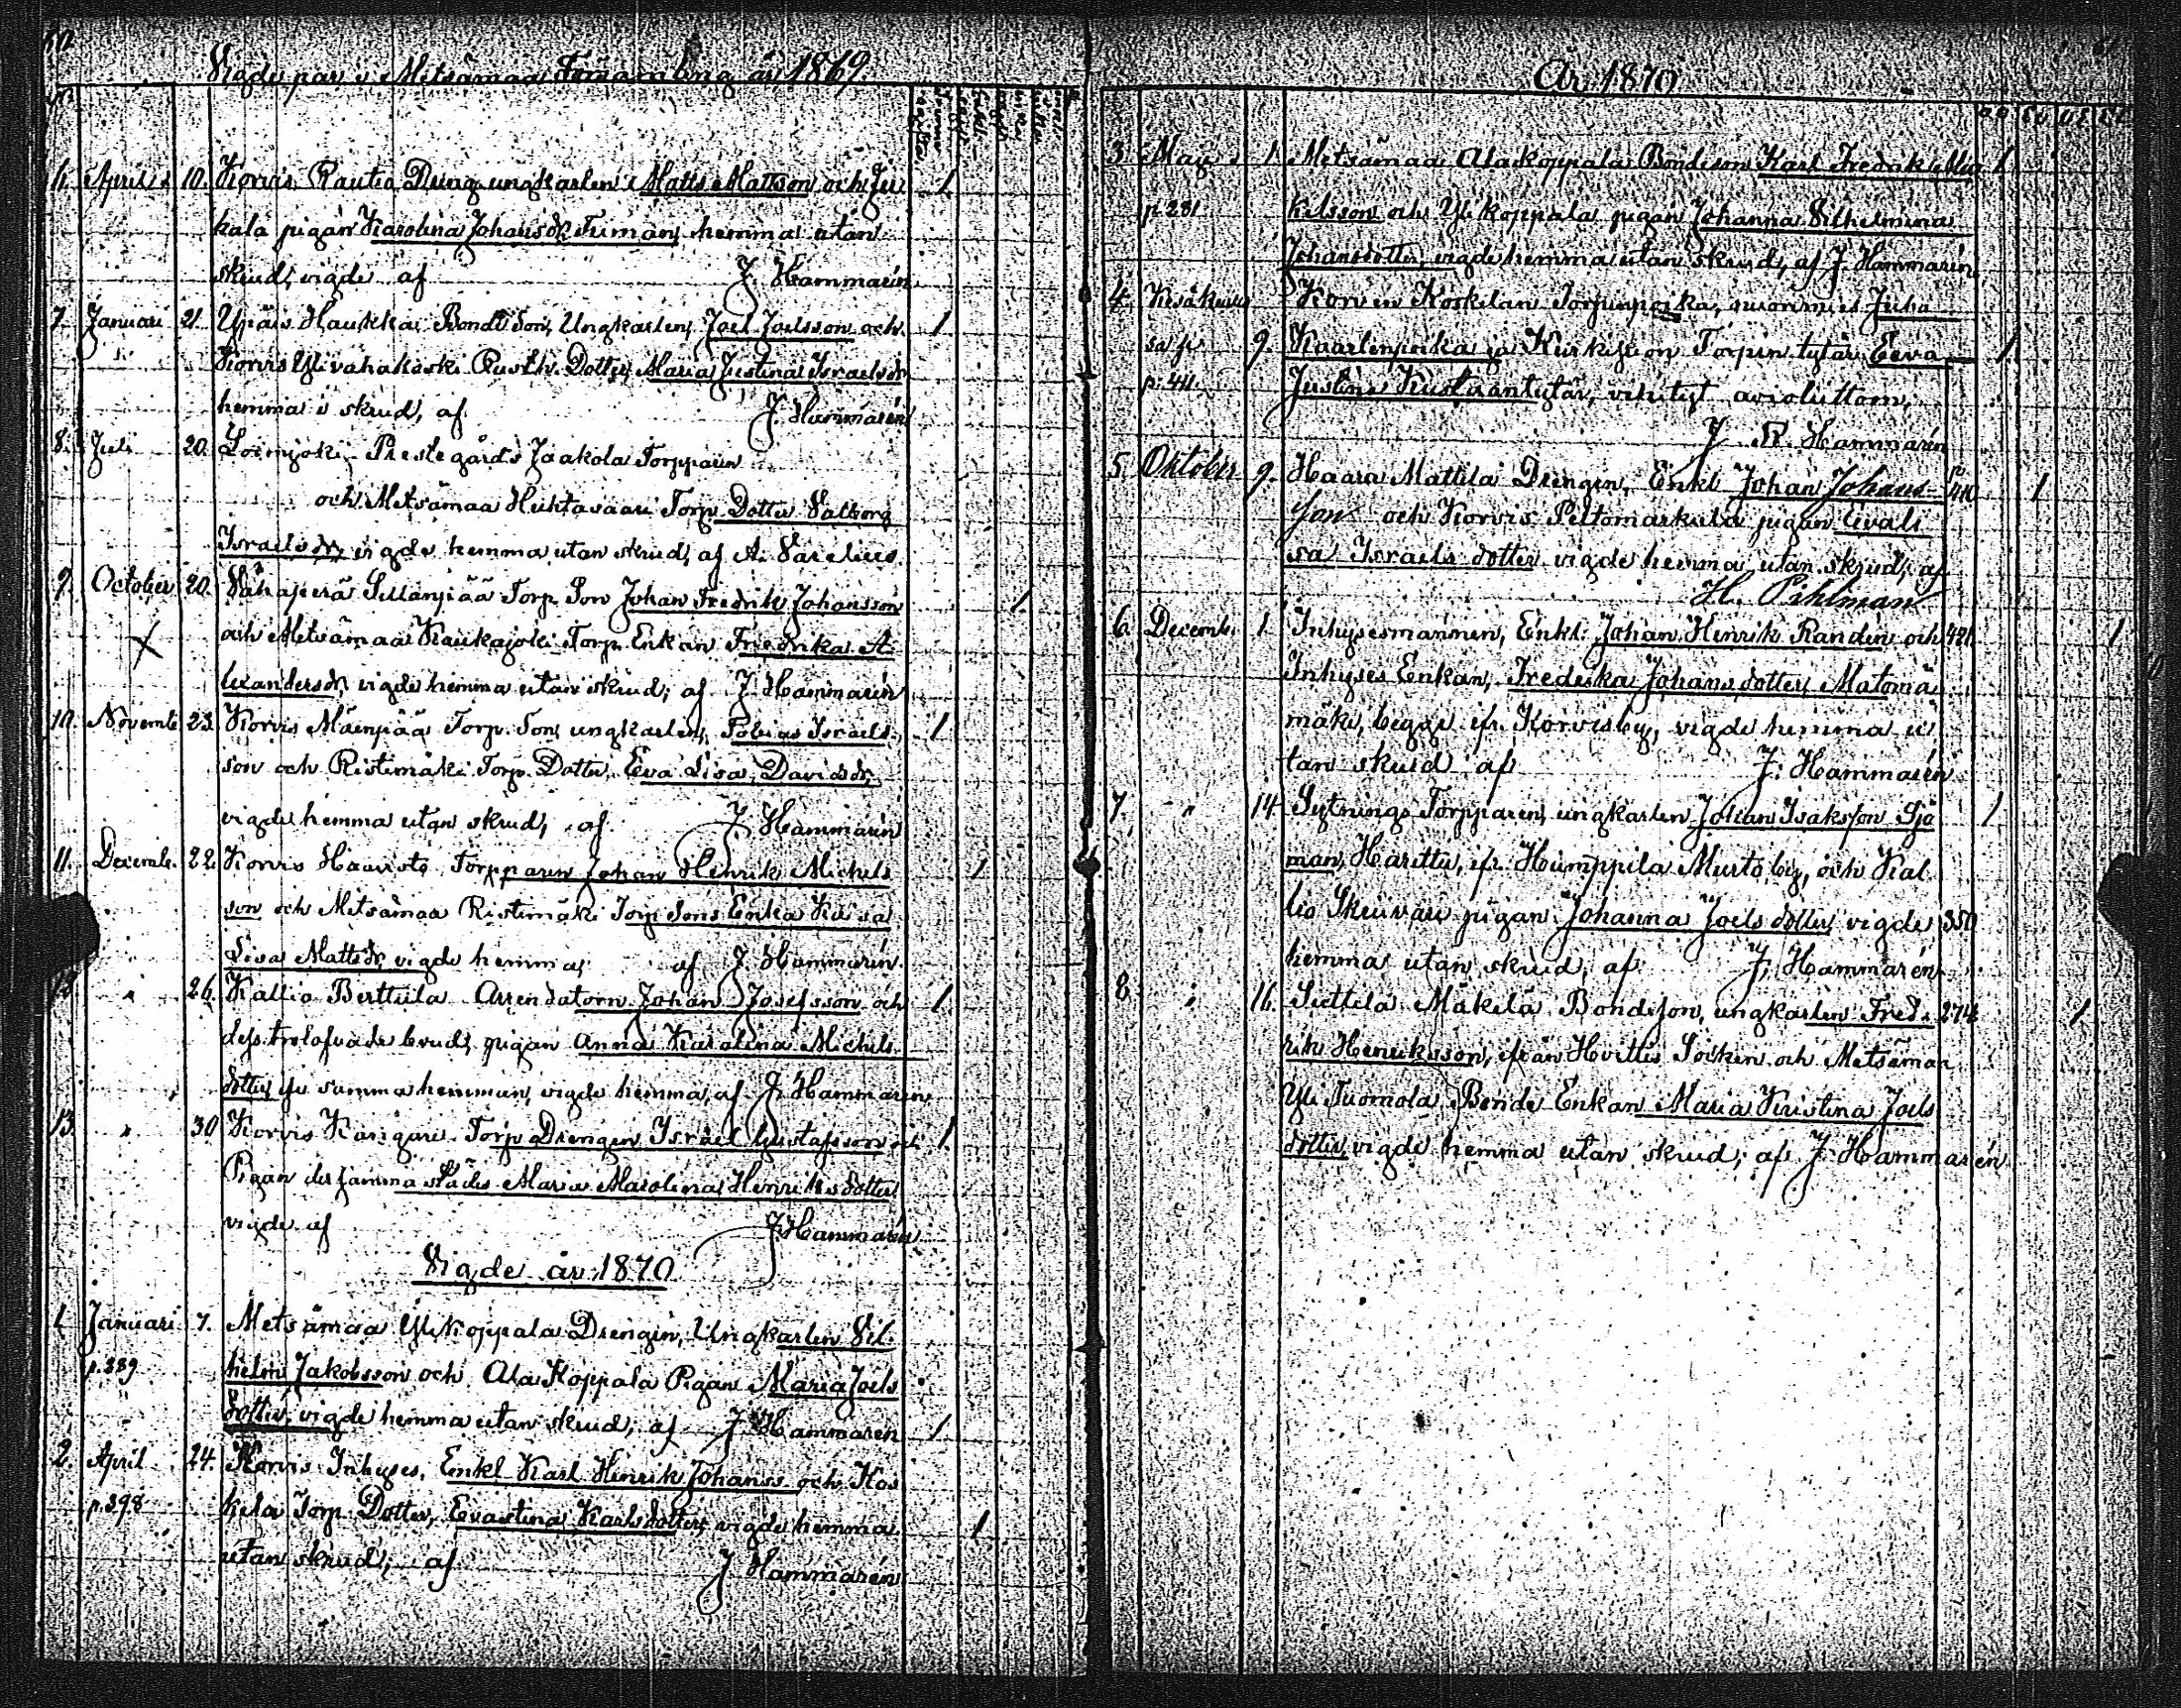 Vigde par i Metsämaa Församling år 1869
April 10. Korvis Rautia Dreng ungkarlen Matts Mattson och Ju
kala pigan Karolina Johansdr Tuman, hemma utan
skrud, vigde af J. Hammarén 1
7. Januari 21. Ypäis Haukka Bonde Son, Ungkarlen, Joel Joelsson och 1
Korvis Ylivahakoski Rusth. Dotter, Maria Justina Israelsdr
hemma i skrud, af J. Hammarén
8. Juli 20. Loimijoki Prestegårds Jaakola Torpparen
och Metsämaa Huhtasaari Torp. Dotter Valborg
Israelsdr, vigde hemma utan skrud, af A. Varelius
9. October 20. Vähäperä Sillänpää Torp. Son Johan Fredrik Johansson 1
och Metsämaa Kaukajoki Torp. Enkan Fredrika A-
lexandersdr, vigde hemma utan skrud, af J. Hammarén
10. Novemb. 23. Korvis Mäenpää Torp. Son, ungkarlen, Tobias Israels- 1
son och Ristimäki Torp. Dotter Eva Lisa Davidsdr,
vigde hemma utan skrud, af J. Hammarén
11. Decemb. 22. Korvis Haavisto Torpparen Johan Henrik Michels 1
son och Metsämaa Ristimäki Torp Sons Enka
Lisa Mattsdr, vigde hemma, af J. Hammarén
12. " 26. Kallio Berttula Arrendatorn Johan Josefsson och 1
dess trolofvade brud, pigan Anna Karolina Michels-
dotter, ifr samma hemman, vigde hemma, af J. Hammarén
13. " 30 Korvis Kangari Torp Drengen Israel Gustafsson och 1
Pigan dersammastädes Maria Karolina Henriksdotter
vigde af J. Hammarén
Vigde år 1870
1. Januari 7. Metsämaa Ylikoppala Drengen, Ungkarlen Vil-
p.389 helm Jakobsson och Ala Koppala Pigan Maria Joels
dotter, vigde hemma utan skrud, af J. Hammarén 1
2. April 24. Korvis Inhyses, Enkl. Karl Henrik Johanss. och Kos
p.398 kela Torp. Dotter, Evastina Karlsdotter, vigde hemma 1
utan skrud; af J. Hammarén
År 1870
3 Maji 1. Metsämaa Alakoppala Bondeson Karl Fredrik Mic 1
p. 281. kelsson och Ylikoppala pigan Johanna Vilhelmina
Johansdotter, vigde hemma utan skrud, af J. Hammarén
4. Kesäkuus Korven Koskelan Torpinpoika, nuorimies Juha
sa p. 9. Kaarlenpoika ja Torpin tytär Eeva 1
p. 411. Justina Kustaantytär, vihityt avioliittoon,
J. Hammarén
5. Oktober 9. Haara Mattila Drengen, Enkl. Johan Johans- 1
son och Korvis Peltomarkula pigan Evali
sa Israels dotter vigde hemma utan skrud, af
H. Pihlman
6. Decemb. 1. Inhysesmannen, Enkl. Johan Henrik Randén och 421 1
Inhyses Enkan, Fredrika Johans dotter Matomä
mäki, begge ifr. Korvisby, vigde hemma u
tan skrud af J. Hammarén
7. " 14. Sytnings Torpparen, ungkarlen Johan Isaksson Sjö 1
man, Harittu, ifr. Humppila Murto by, och Kal
lio Skruvari pigan Johanna Joels dotter, vigde 350
hemma utan skrud, af J. Hammarén
8 " 16. Suttila Mäkelä Bondeson, ungkarlen Fred- 274 1
rik Henriksson, ifrån Hvittis Socken och Metsämaa
Yli Tuomola Bonde Enkan Maria Kristina Joels
dotter, vigde hemma utan skrud; af J. Hammarén